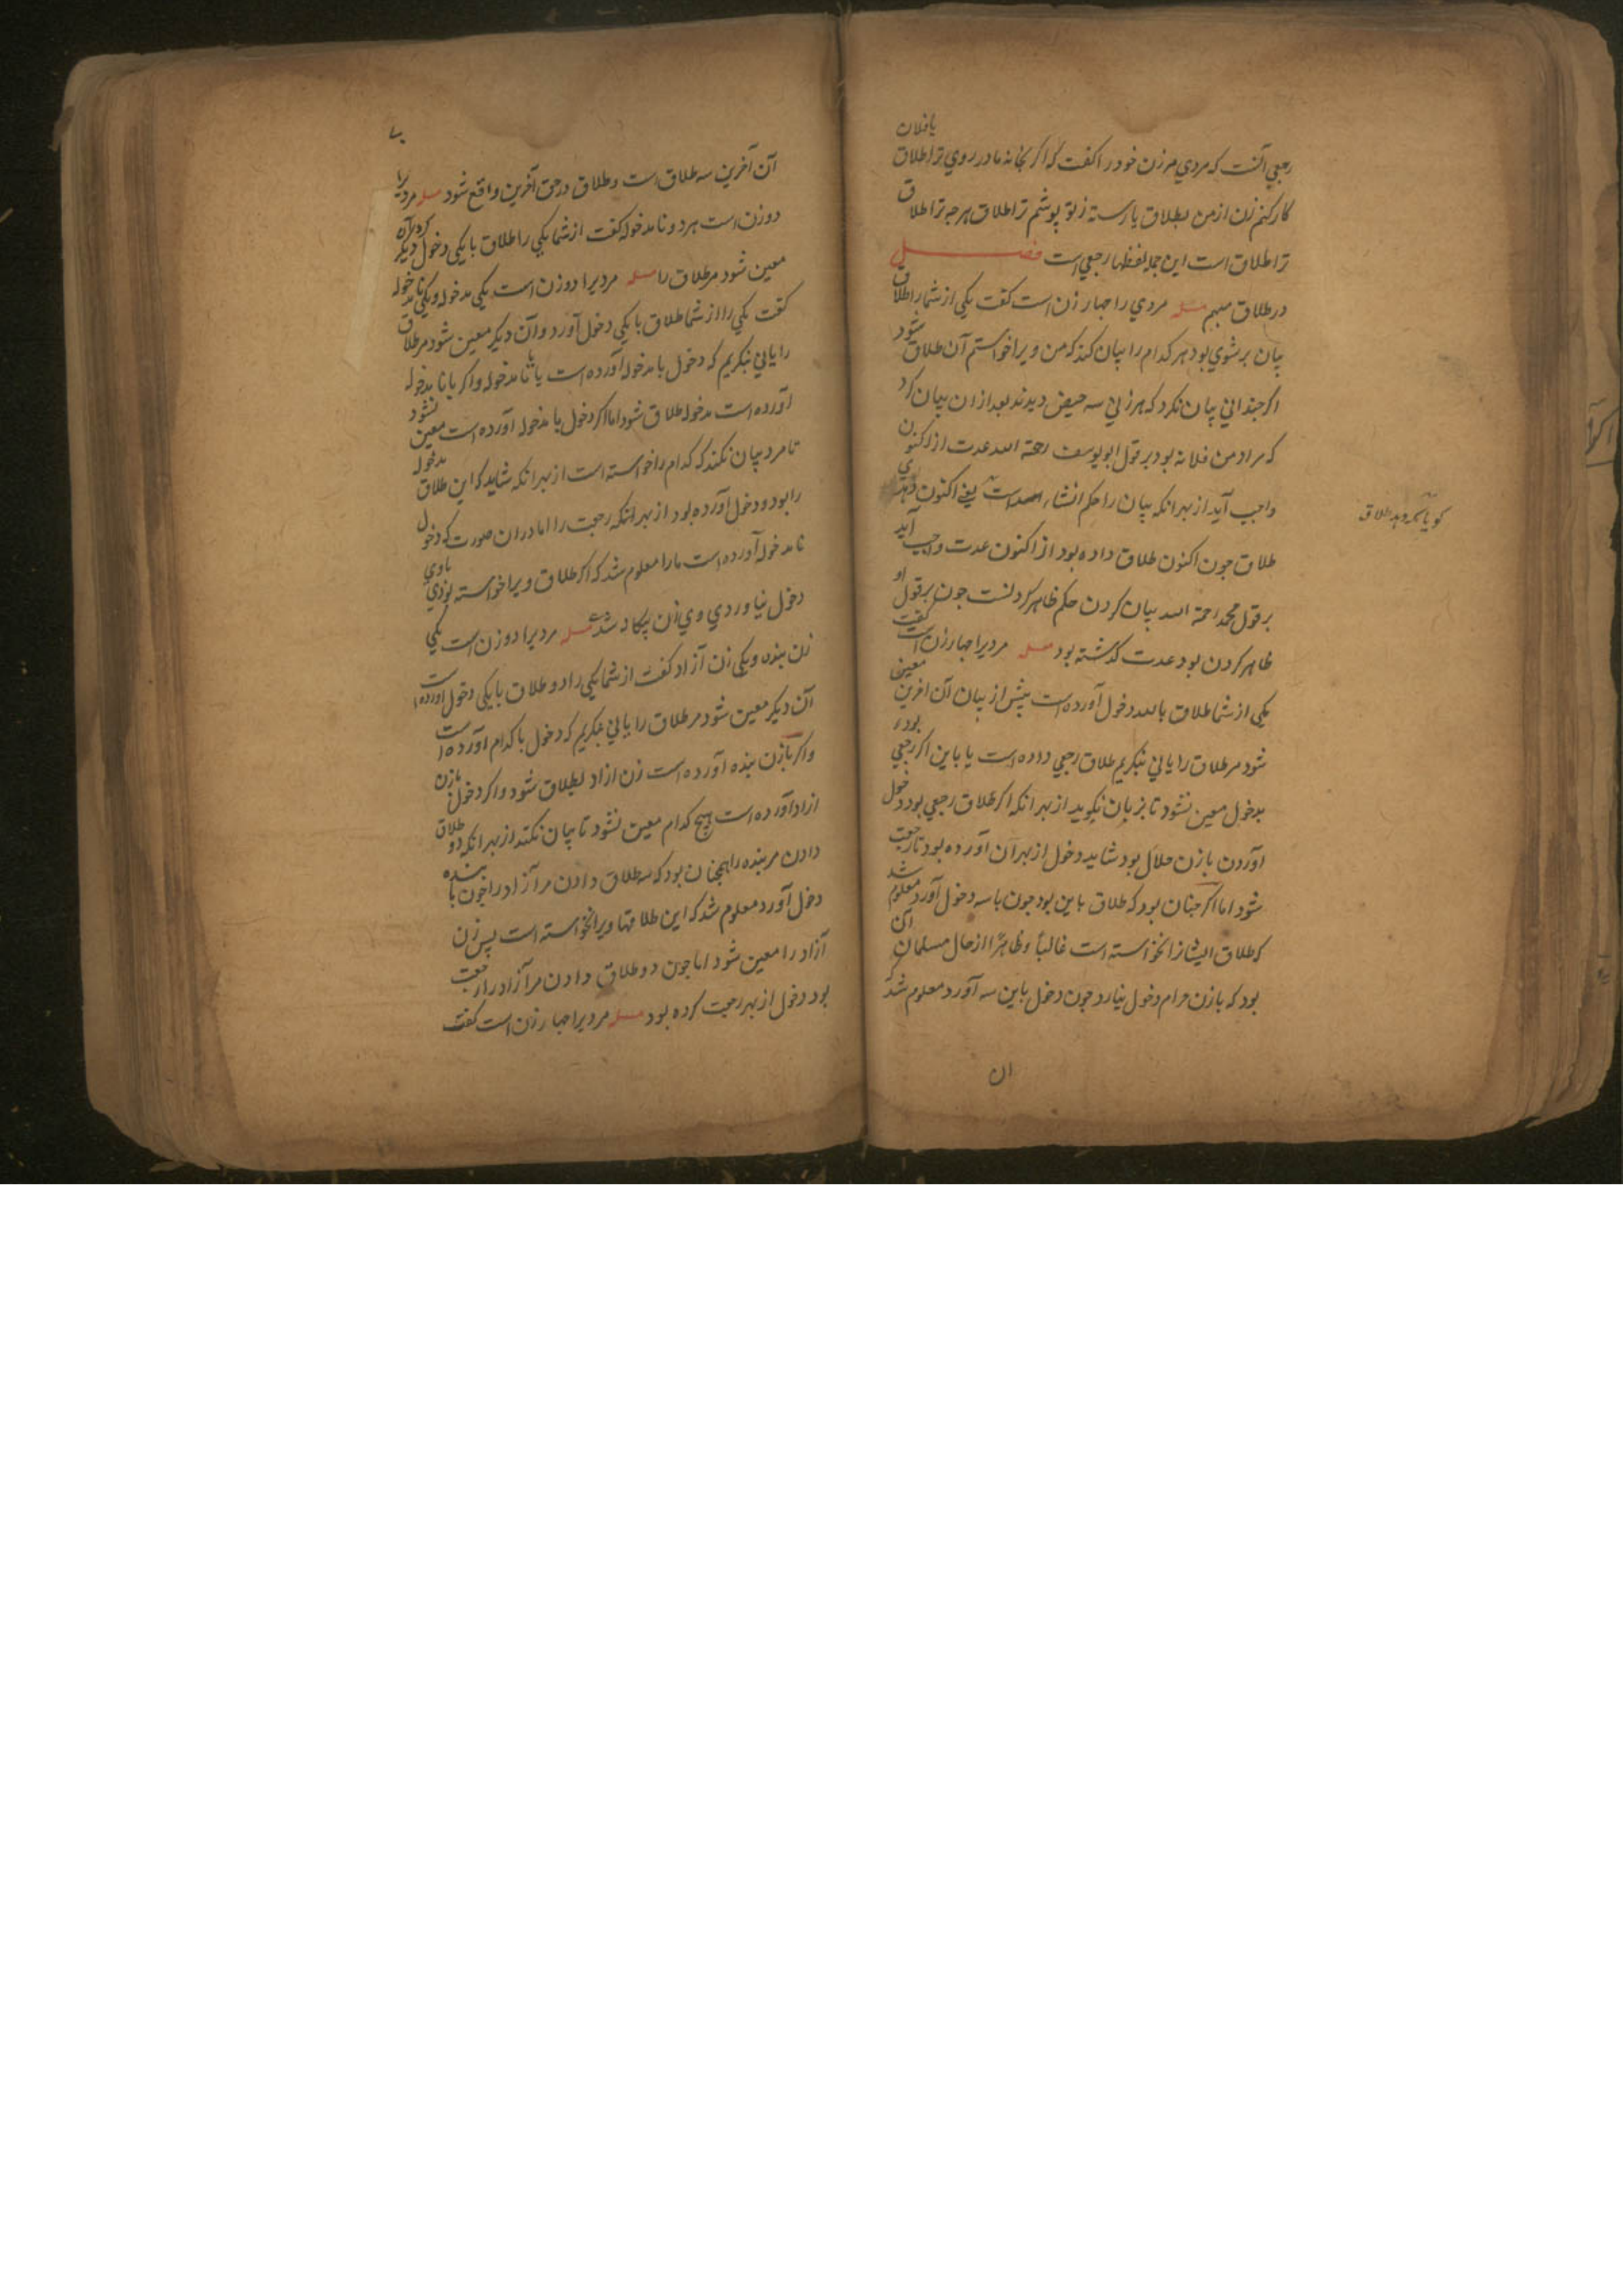 رجعي آنست که مردي مر زن خود را کفت که اکر بخانه مادر روي ترا طلاق يا فلان
کار کنم زن از من بطلاق يا رسته ز تو پوشم ترا طلاق هرجه ترا طلاق
ترا طلاق است اين جمله لفظها رجعي است فصل
در طلاق مبهم مسله مردي را جهار زن است کفت يکي از شما را طلاق
بيان بر شوي بود هر کدام را بيان کند که من ويرا خواستم آن طلاق شود
اکر جنداني بيان نکرد که هر زني سه حيض ديدند بعد از ان بيان کرد
که مراد من فلانه بود بر قول ابو يوسف رحمة الله عدت از اکنون
واجب آيد از بهر انکه بيان را حکم انشاء است يعني اکنون
کويا که دهد طلاق
طلاق جون اکنون طلاق داده بود از اکنون عدت واجب آيد
بر قول محمد رحمة الله بيان کردن حکم ظاهر کردنست جون بر قول او
ظاهر کردن بود عدت کذشته بود مسله مرديرا جهار زن است کفت
يکي از شما طلاق با سه دخول آورده است پيش از بيان آن اخرين معين
شود مر طلاق را ياني بنکريم طلاق رجعي داده است يا باين اکر رجعي بود
بدخول معين نشود تا بزبان نکويد از بهر انکه اکر طلاق رجعي بود دخول
آوردن با زن حلال بود شايد دخول از بهر آن آورده بود تا رجعت
شود اما اکر جنان بود که طلاق باين بود جون با سه دخول آورد معلوم شد
که طلاق ايشانرا نخواسته است غالبا و ظاهرا از حال مسلمان آن
بود که با زن حرام دخول نيارد جون دخول باين سه آورد معلوم شد که
ان
آن آخرين سه طلاق است و طلاق در حق آخرين واقع شود مسله مردي را
دو زن است هر دو نامدخوله کفت از شما يکي را طلاق با يکي دخول کرد آن ديکر
معين شود مر طلاق را مسله مرديرا دو زن است يکي مدخوله و يکي نامدخوله
کفت يکي را از شما طلاق با يکي دخول آورد و آن ديکر معين شود مر طلاق
را ياني بنکريم که دخول با مدخوله آورده است يا با نامدخوله و اکر با نامدخوله
آورده است مدخوله طلاق شود اما اکر دخول با مدخوله آورده است معين نشود
تا مرد بيان نکند که کدام را خواسته است از بهر انکه شايد که اين طلاق مدخوله
را بود و دخول آورده بود از بهر انکه رجعت را اما در ان صورت که دخول
نامدخوله آورده است ما را معلوم شد که اکر طلاق ويرا خواسته بودي با وي
دخول نياوردي مسله مرديرا دو زن است يکي
زن بنده و يکي زن آزاد کفت از شما يکي را دو طلاق با يکي دخول آورده است
آن ديکر معين شود مر طلاق را ياني بنکريم که دخول با کدام آورده است
و اکر با زن بنده آورده است زن ازاد بطلاق شود و اکر دخول با زن
ازاد آورده است هيج کدام معين نشود تا بيان نکند از بهر انکه دو طلاق
دادن مر بنده را همجنان بود که سه طلاق دادن مر آزاد را جون با بنده
دخول آورد معلوم شد که اين طلاقها ويرا نخواسته است پس زن
آزاد را معين شود اما جون دو طلاق دادن مر آزاد را رجعت
بود دخول از بهر رجعت کرده بود مسله مرديرا جهار زن است کفت